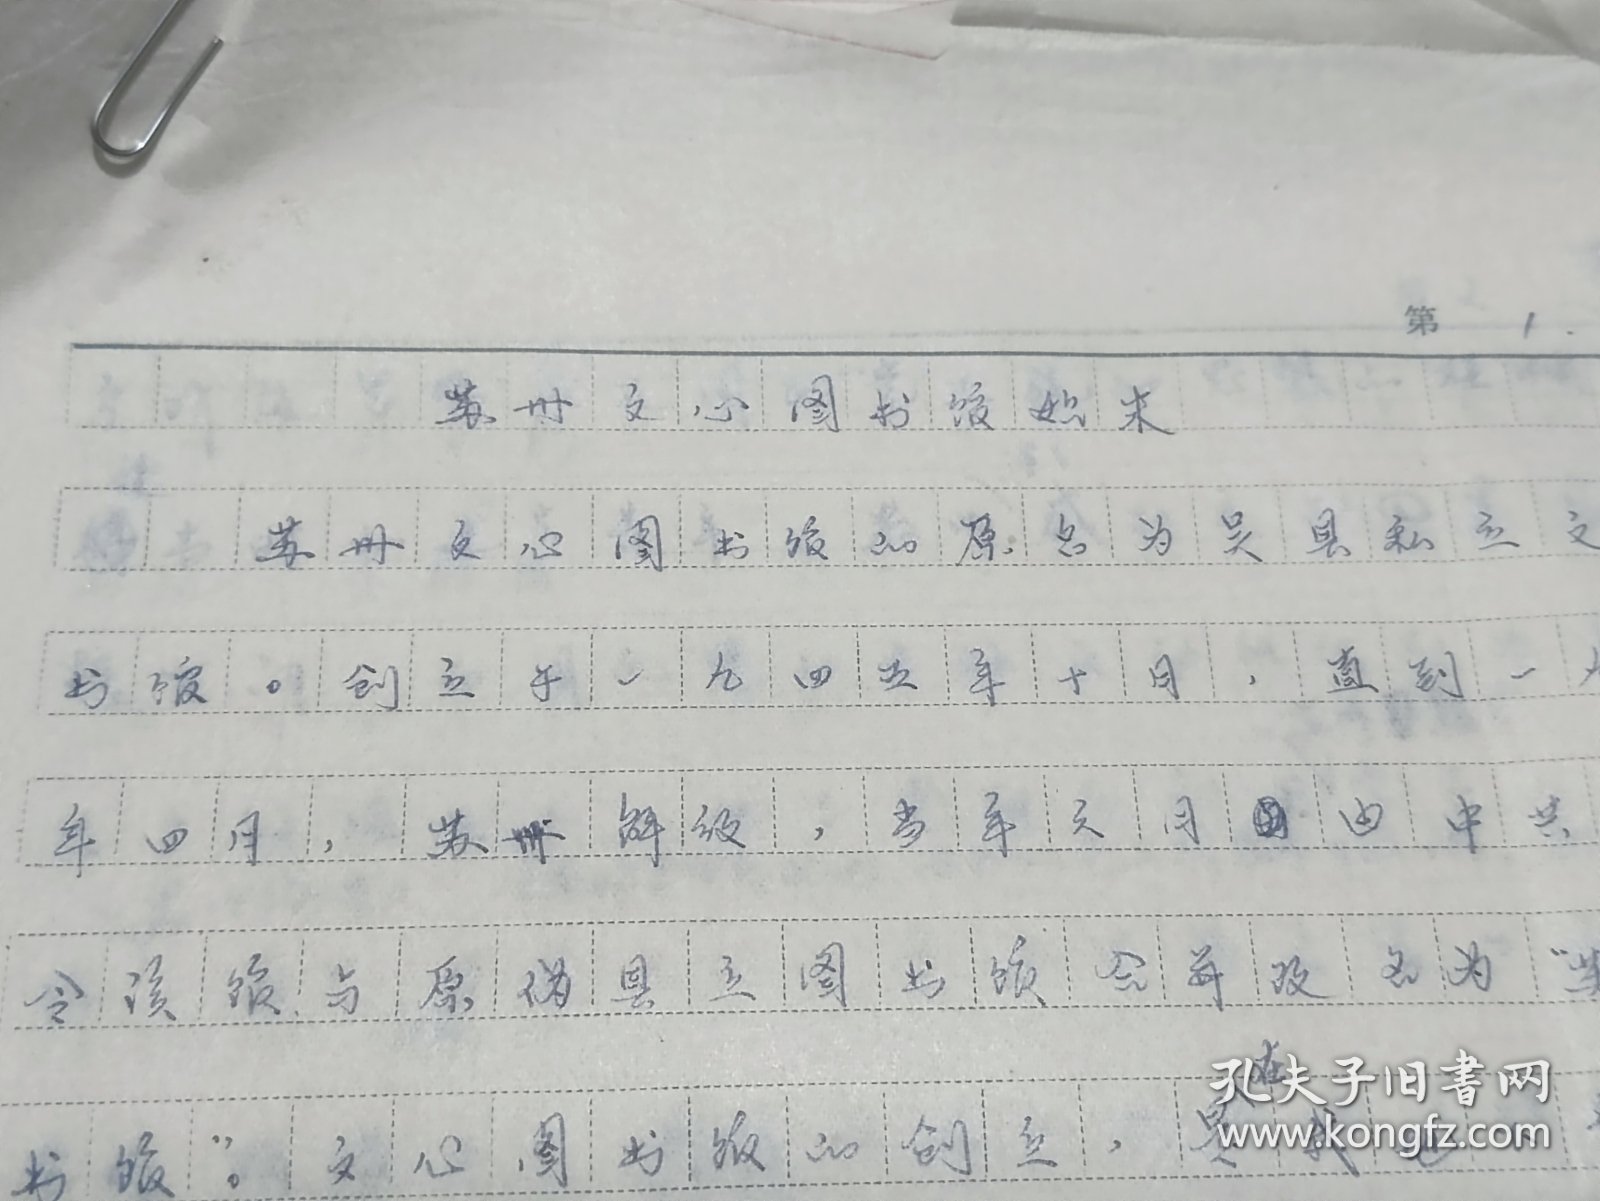 第 1.
苏州文心图书馆始末
苏州文心图书馆的原名为吴县私立文
书馆。创立于一九四五年十月，直到一九
年四月，苏州解放，当年六月由中共
令该馆与原伪县立图书馆合并改名为“苏
在
书馆”。文心图书馆的创立，是我
孔夫子旧书网
www.kongfz.com